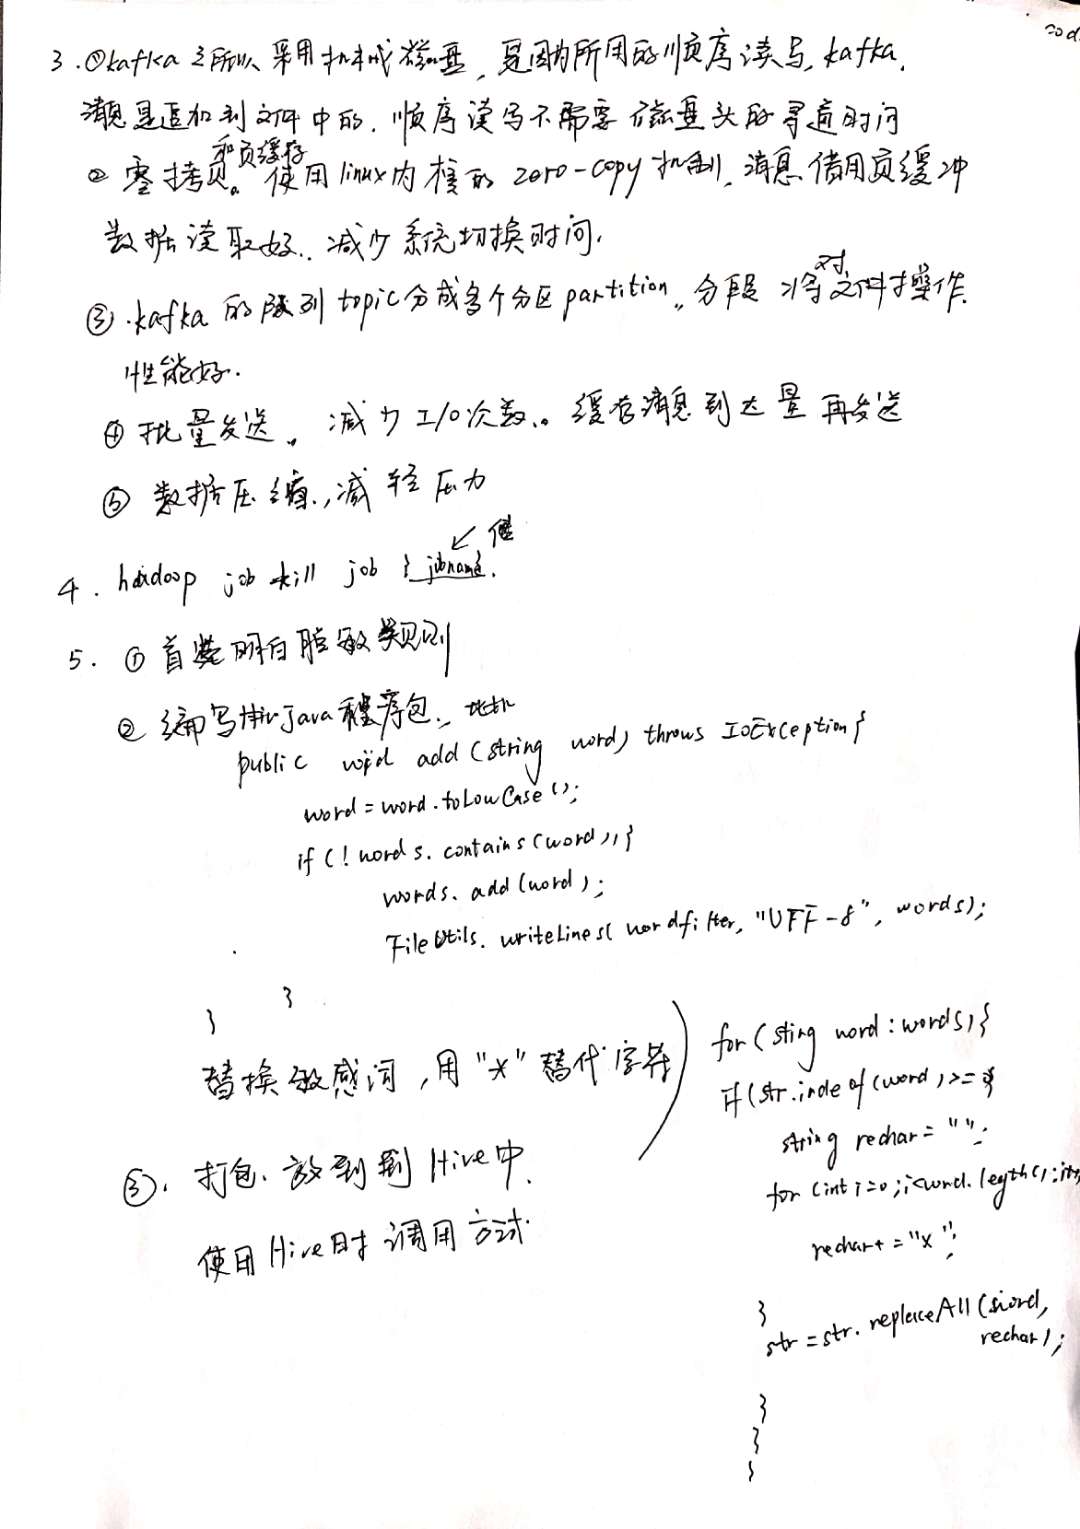 cod
3. ①kafka 之所以采用机械磁盘，是因为所用的顺序读写，kafka，
消息是追加到文件中的，顺序读写不需要磁盘头的寻道时间
② 零拷贝和页缓存。使用linux内核的 zero-copy 机制，消息借用页缓冲
数据读取好，减少系统切换时间，
③.kafka 的队列 topic分成多个分区 partition，分段 对文件操作.
性能好.
④ 批量发送。减少I/O次数。缓存消息到达量再发送
⑤ 数据压缩，减轻压力
4. hadoop job kill job {jobname}. ↙ 值
5. ① 首先明白脱敏规则
② 编写Hive java程序包，
public void add (string word) throws IoException{
word=word.toLowCase();
if(!words.contains(word)){
words.add(word);
FileUtils.writeLines(wordfilter, "UFF-8", words);
}
}
替换敏感词，用"*"替代字符
for(sting word:words){
if(str.inde of(word)>=
string rechar= "";
for(int i=0;i<word.legth();i++
rechar+="x";
}
str=str.replaceAll(word,
rechar);
}
}
}
③. 打包、放到Hive中.
使用Hive时调用方式.